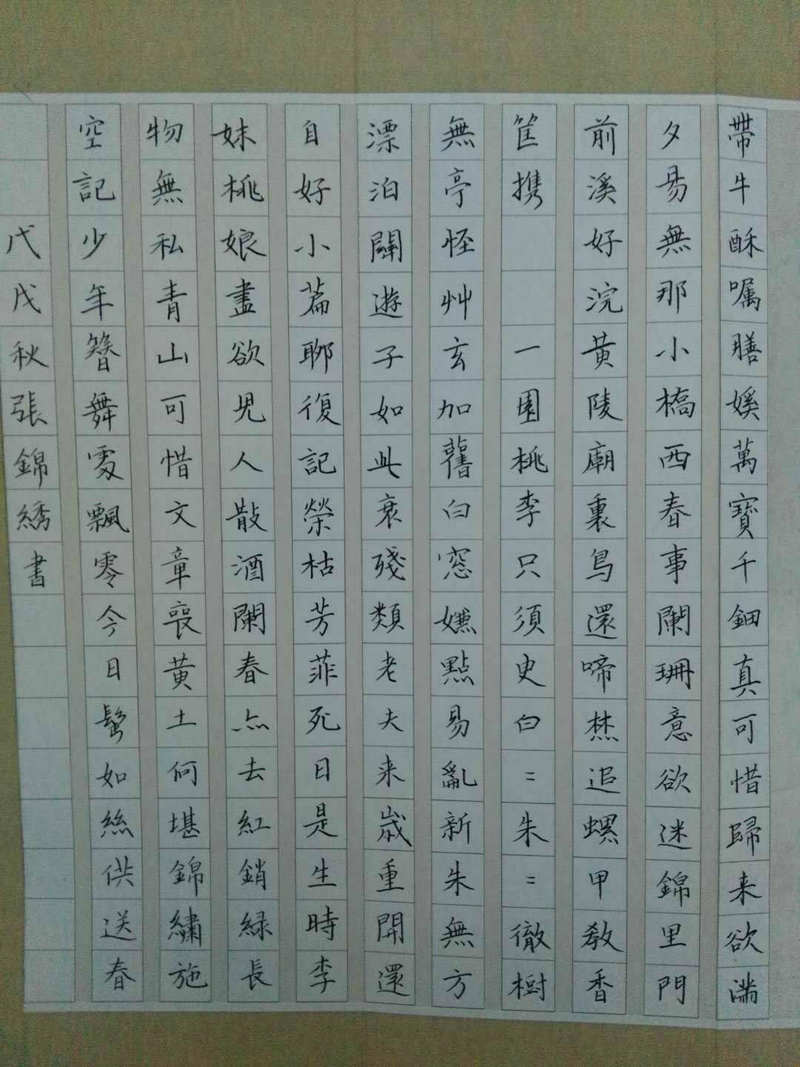 帶牛酥嘱膳㜎萬寶千鈿真可惜歸来欲滿
夕昜無那小橋西春事闌珊意欲迷錦里門
前溪好浣黃陵廟裏鳥還啼焚追螺甲教香
筐携一園桃李只須史白=朱=徹樹
無亭怪艸玄加舊白窓嫌點易亂新朱無方
漂泊關遊子如此衰殘類老夫来歲重開還
自好小篇聊復記榮枯芳菲死日是生時李
妹桃娘盡欲児人散酒闌春亦去紅銷緑長
物無私青山可惜文章喪黃土何堪錦繡施
空記少年簪舞處飄零今日髩如絲供送春
戊戌秋張錦綉書